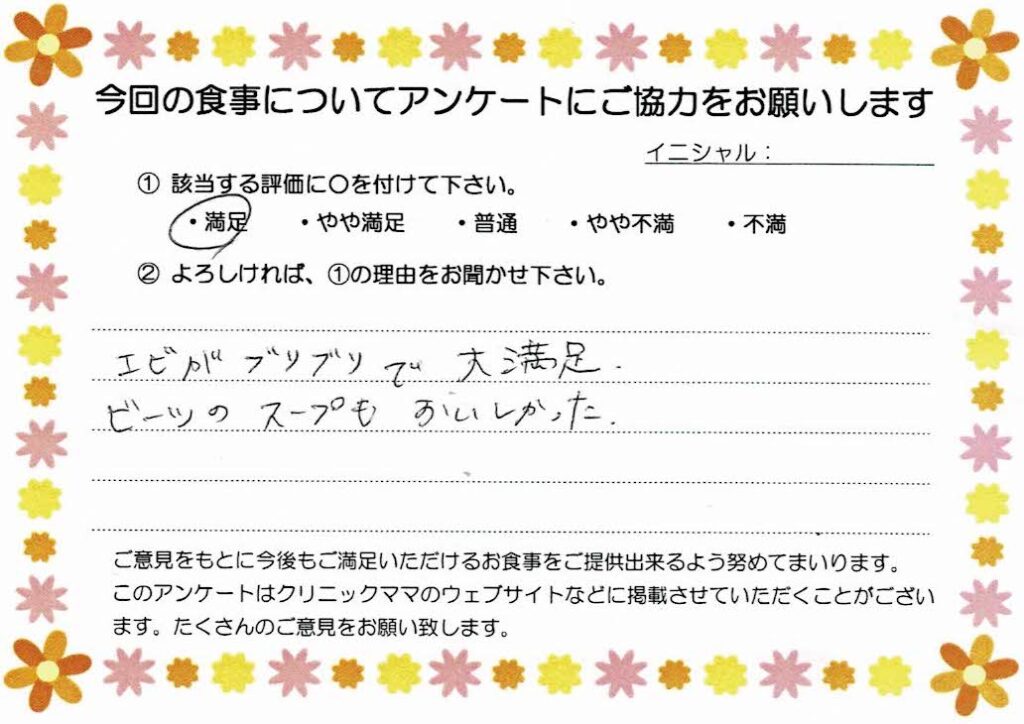 今回の食事についてアンケートにご協力をお願いします
イニシャル：
① 該当する評価に〇を付けて下さい。
・満足 ・やや満足 ・普通 ・やや不満 ・不満
② よろしければ、①の理由をお聞かせ下さい。
エビがブリブリで 大満足.
ビーツの スープも おいしかった.
ご意見をもとに今後もご満足いただけるお食事をご提供出来るよう努めてまいります。
このアンケートはクリニックママのウェブサイトなどに掲載させていただくことがござい
ます。たくさんのご意見をお願い致します。